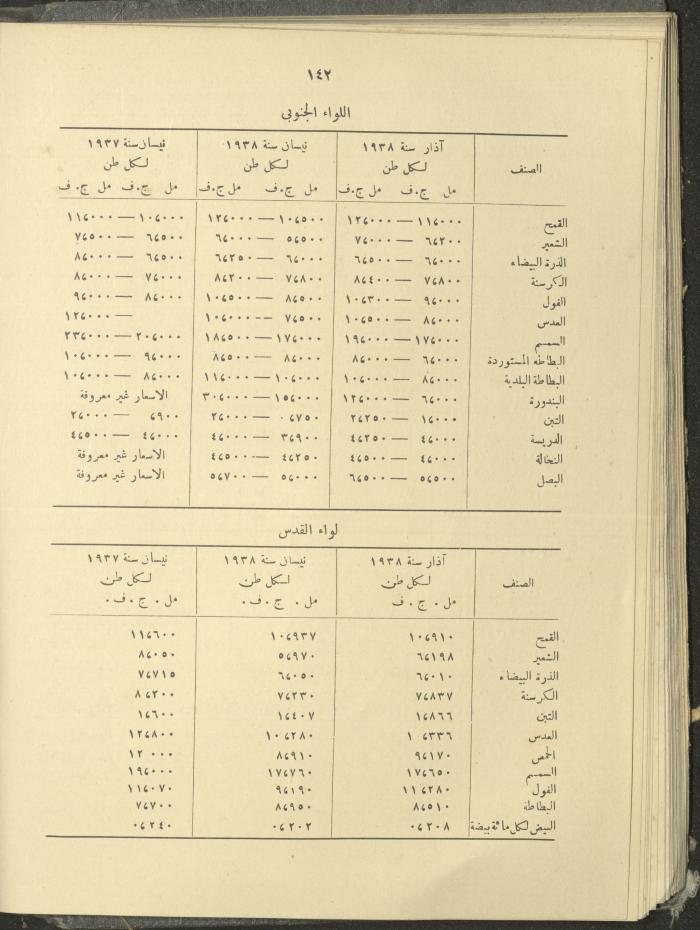 ١٤٢
اللواء الجنوبي
الصنف آذار سنة ١٩٣٨ نيسان سنة ١٩٣٨ نيسان سنة ١٩٣٧
لكل طن لكل طن لكل طن
مل ج.ف مل ج.ف مل ج.ف مل ج.ف مل ج.ف مل ج.ف
القمح ١١،٠٠٠ — ١٢،٠٠٠ ١٠،٥٠٠ — ١٢،٠٠٠ ١٠،٠٠٠ — ١١،٠٠٠
الشعير ٦،٢٠٠ — ٧،٠٠٠ ٥،٥٠٠ — ٦،٠٠٠ ٦،٥٠٠ — ٧،٥٠٠
الذرة البيضاء ٦،٠٠٠ — ٦،٥٠٠ ٦،٠٠٠ — ٦،٢٥٠ ٦،٥٠٠ — ٨،٠٠٠
الكرسنة ٧،٨٠٠ — ٨،٤٠٠ ٧،٨٠٠ — ٨،٢٠٠ ٧،٠٠٠ — ٨،٠٠٠
الفول ٩،٠٠٠ — ١٠،٣٠٠ ٨،٥٠٠ — ١٠،٥٠٠ ٨،٠٠٠ — ٩،٠٠٠
العدس ٨،٠٠٠ — ١٠،٥٠٠ ٧،٥٠٠ — ١٠،٠٠٠ — ١٢،٠٠٠
السمسم ١٧،٠٠٠ — ١٩،٠٠٠ ١٧،٠٠٠ — ١٨،٥٠٠ ٢٠،٠٠٠ — ٢٣،٠٠٠
البطاطه المستوردة ٦،٠٠٠ — ٨،٠٠٠ ٨،٠٠٠ — ٨،٥٠٠ ٩،٠٠٠ — ١٠،٠٠٠
البطاطة البلدية ٨،٠٠٠ — ١٠،٠٠٠ ١٠،٠٠٠ — ١١،٠٠٠ ٨،٠٠٠ — ١٠،٠٠٠
البندورة ٦،٠٠٠ — ١٢،٠٠٠ ١٥،٠٠٠ — ٣٠،٠٠٠ الاسعار غير معروفة
التبن ١،٠٠٠ — ٢،٢٥٠ ٠،٧٥٠ — ٢،٠٠٠ ،٩٠٠ — ٢،٠٠٠
الدريسة ٤،٠٠٠ — ٤،٢٥٠ ٣،٩٠٠ — ٤،٠٠٠ ٤،٠٠٠ — ٤،٥٠٠
النخالة ٤،٠٠٠ — ٤،٥٠٠ ٤،٢٥٠ — ٤،٥٠٠ الاسعار غير معروفة
البصل ٥،٥٠٠ — ٦،٥٠٠ ٥،٠٠٠ — ٥،٧٠٠ الاسعار غير معروفة
لواء القدس
الصنف آذار سنة ١٩٣٨ نيسان سنة ١٩٣٨ نيسان سنة ١٩٣٧
لكل طن لكل طن لكل طن
مل . ج . ف مل . ج . ف . مل . ج . ف .
القمح ١٠،٩١٠ ١٠،٩٣٧ ١١،٦٠٠
الشعير ٦،١٩٨ ٥،٩٧٠ ٨،٠٥٠
الذرة البيضاء ٦،٠١٠ ٦،٠٥٠ ٧،٧١٥
الكرسنة ٧،٨٣٧ ٧،٢٣٠ ٨،٢٠٠
التبن ١،٨٦٦ ١،٤٠٧ ١،٦٠٠
العدس ١ ،٣٣٦ ١٠،٢٨٠ ١٢،٨٠٠
الحمص ٩،١٧٠ ٨،٩١٠ ١٢ ٠٠٠
السمسم ١٧،٦٥٠ ١٧،٧٦٠ ١٩،٠٠٠
الفول ١١،٢٨٠ ٩،١٩٠ ١١،٠٧٠
البطاطة ٨،٥١٠ ٨،٩٥٠ ٧،٧٠٠
البيض لكل مائة بيضة ٠،٢٠٨ ٠،٢٠٢ ٠،٢٤٠